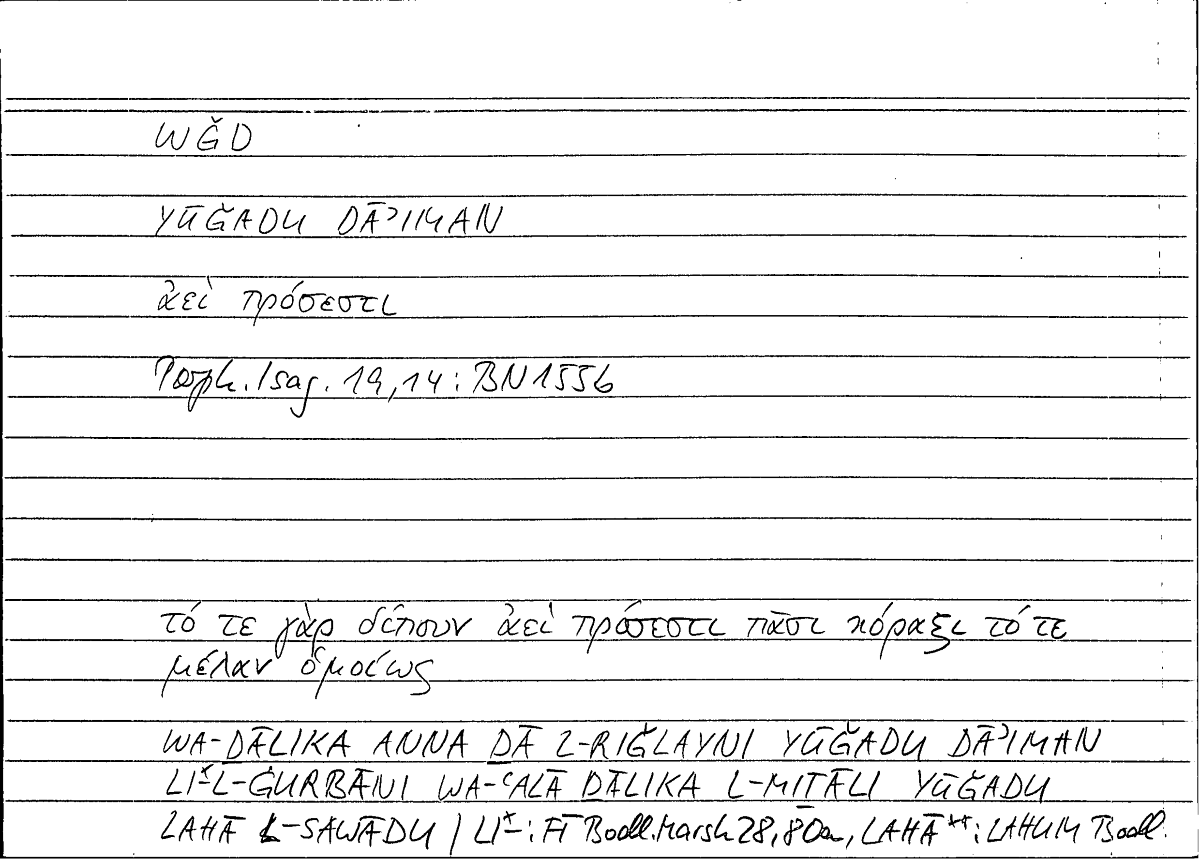 WǦD
YŪǦADU DĀʾIMAN
ἀεὶ πρόσεστι
Porph. Isag. 19,14: BN 1556
τό τε γὰρ δίπουν ἀεὶ πρόσεστι πᾶσι κόραξι τό τε
μέλαν ὁμοίως
WA-ḎĀLIKA ANNA ḎĀ L-RIǦLAYNI YŪǦADU DĀʾIMAN
LI*-L-ĠURBĀNI WA-ʿALĀ ḎĀLIKA L-MIṮĀLI YŪǦADU
LAHĀ L-SAWĀDU / LI*-: FĪ Bodl. Marsh 28, 80a, LAHĀ**: LAHUM Bodl.